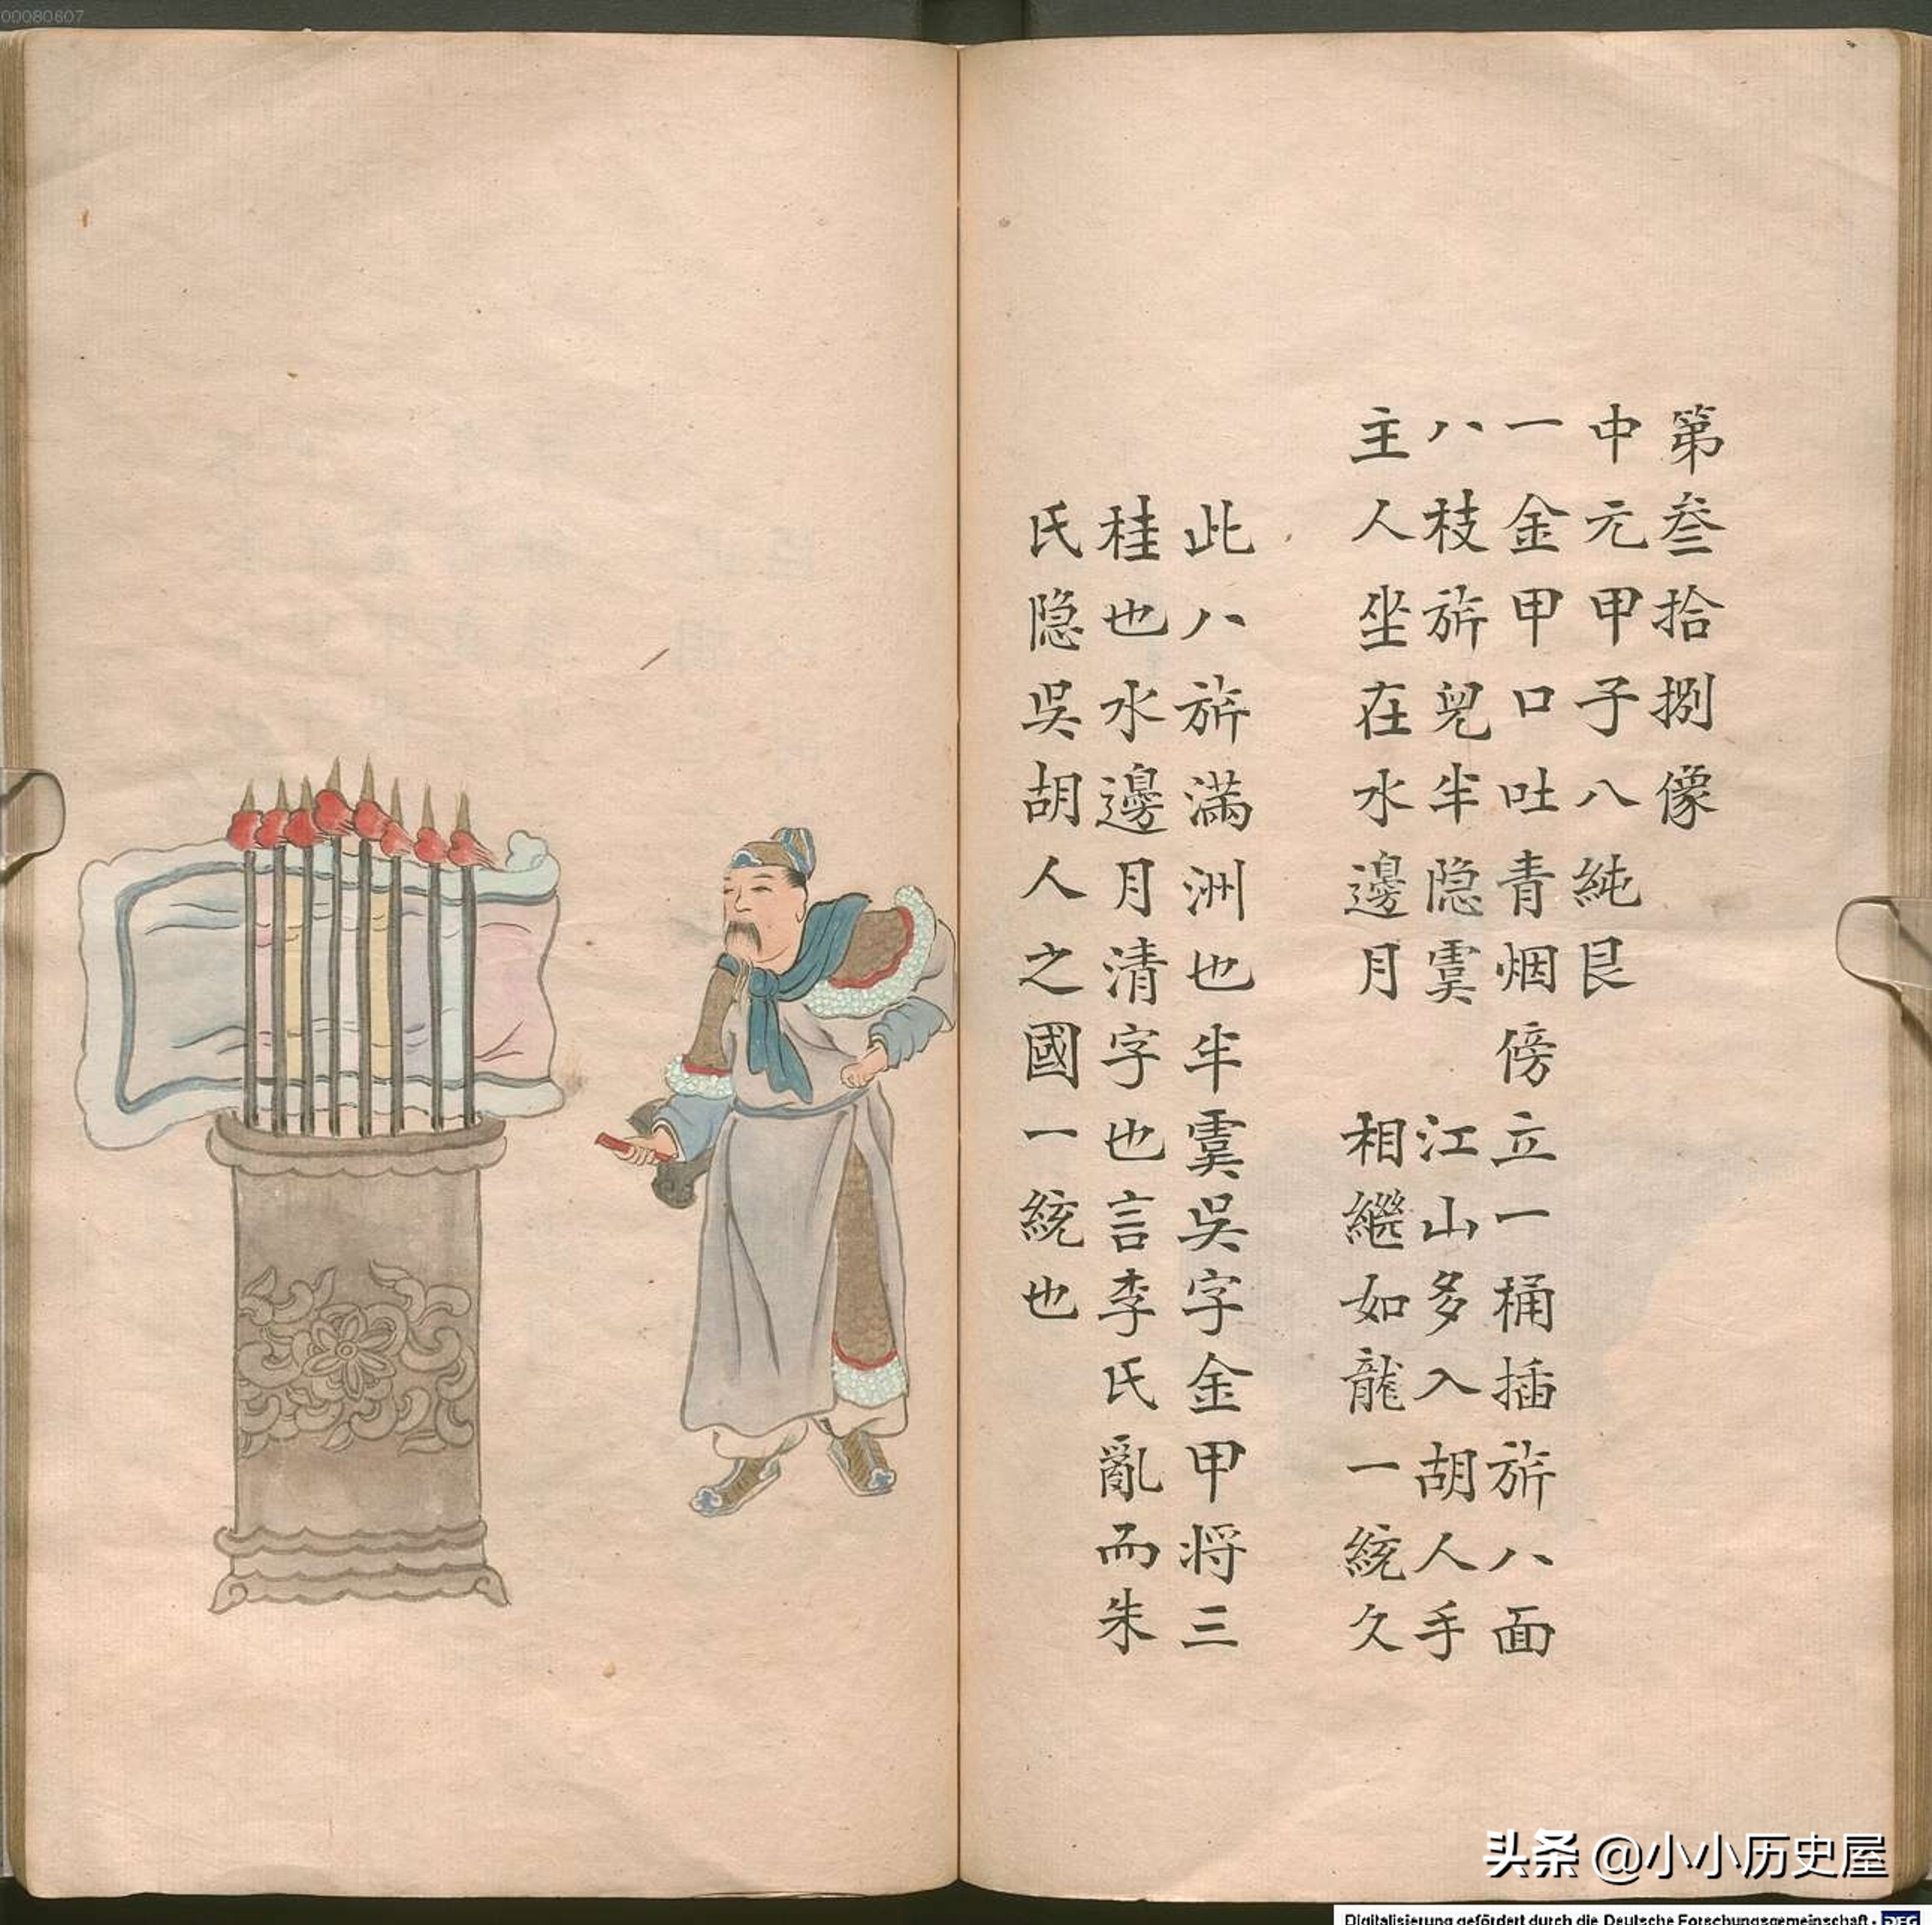 00080607
第叁拾捌像
中元甲子八 純艮
一金甲口吐青烟傍立一桶插旂八面
八枝旂兒半隐雲 江山多入胡人手
主人坐在水邊月 相繼如龍一統久
此八旂滿洲也半雲吳字金甲将三
桂也水邊月清字也言李氏亂而朱
氏隐吳胡人之國一統也
头条 @小小历史屋
Digitalisierung gefördert durch die Deutsche Forschungsgemeinschaft · DFG